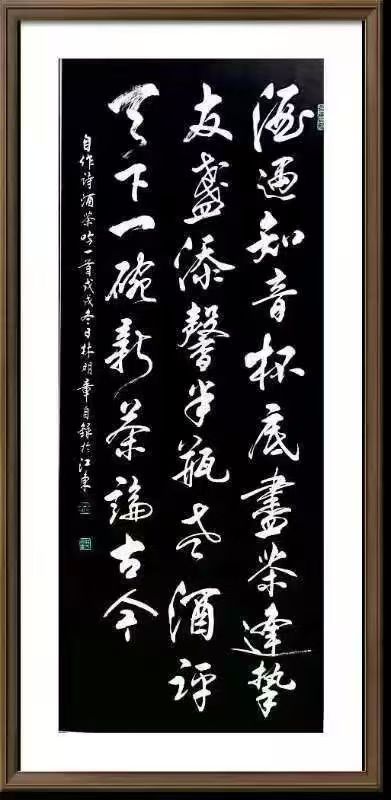 酒逢知音杯底盡茶逢摯
友盞添馨半瓶老酒評
天下一碗新茶論古今
自作诗酒茶吟一首戊戌冬日林明章自録於江東